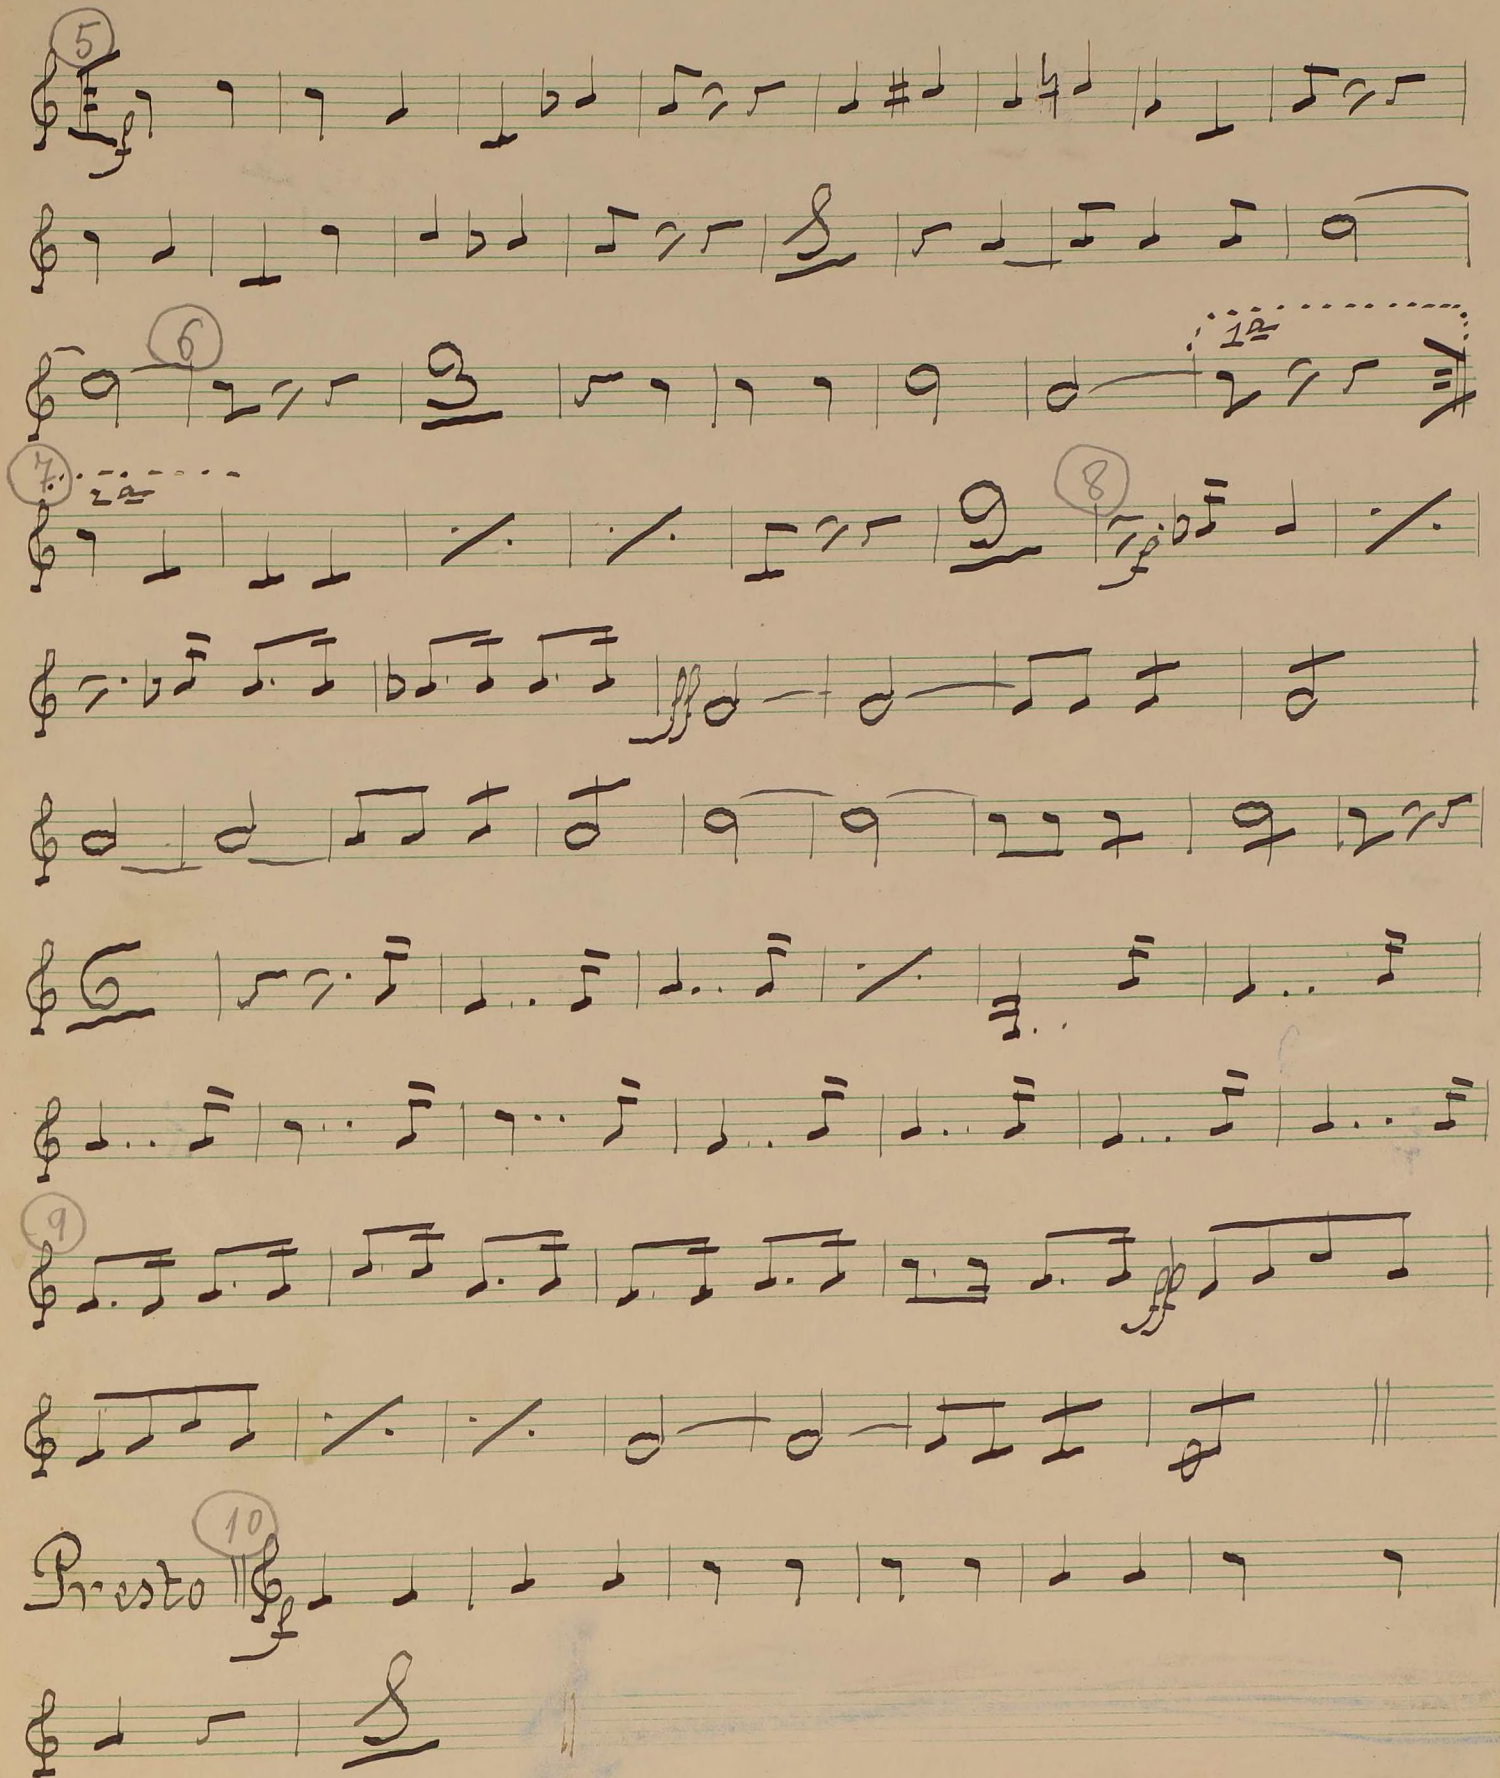 5
f
8
6
3
1ª
7
2ª
9
8
f
ff
6
9
ff
10
Presto
f
8